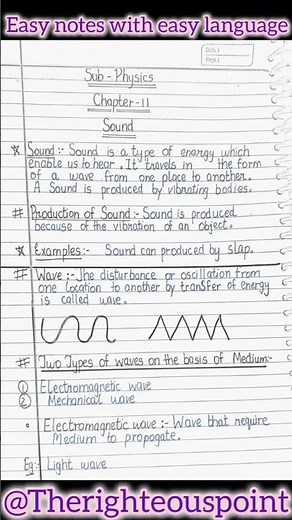 Easy notes with easy language
Date
Page
Sub - Physics
Chapter-11
Sound
☆ Sound :- Sound is a type of energy which
enable us to hear. It travels in the form
of a wave from one place to another.
A Sound is produced by vibrating bodies.
# Production of Sound :- Sound is produced
because of the vibration of an object.
☆ Examples:- Sound can produced by slap.
# Wave :- The disturbance or oscillation from
one location to another by transfer of energy
is called wave.
# Two Types of waves on the basis of Medium:-
① Electromagnetic wave
② Mechanical wave
• Electromagnetic wave :- Wave that require
Medium to propogate.
Eg:- Light wave
@Therighteouspoint